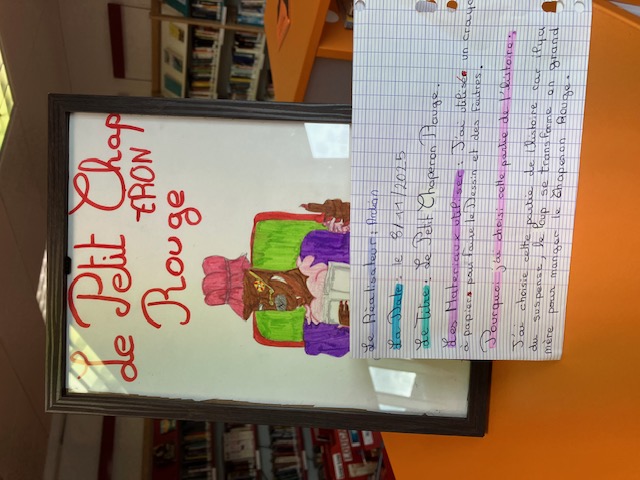 Le Petit Chap
ERON
Rouge
Le Réalisateur : Aidan
La Date : le 8/11/2025
Le Titre : Le Petit Chaperon Rouge.
Les Matériaux utilisés : J'ai utilisée un crayon
à papier pour faire le Dessin et des feutres.
Pourquoi j'ai choisi cette partie de l'histoire.
J'ai choisie cette partie de l'histoire car il y a
du suspense, le loup se transforme en grand
mère pour manger le Chaperon Rouge.